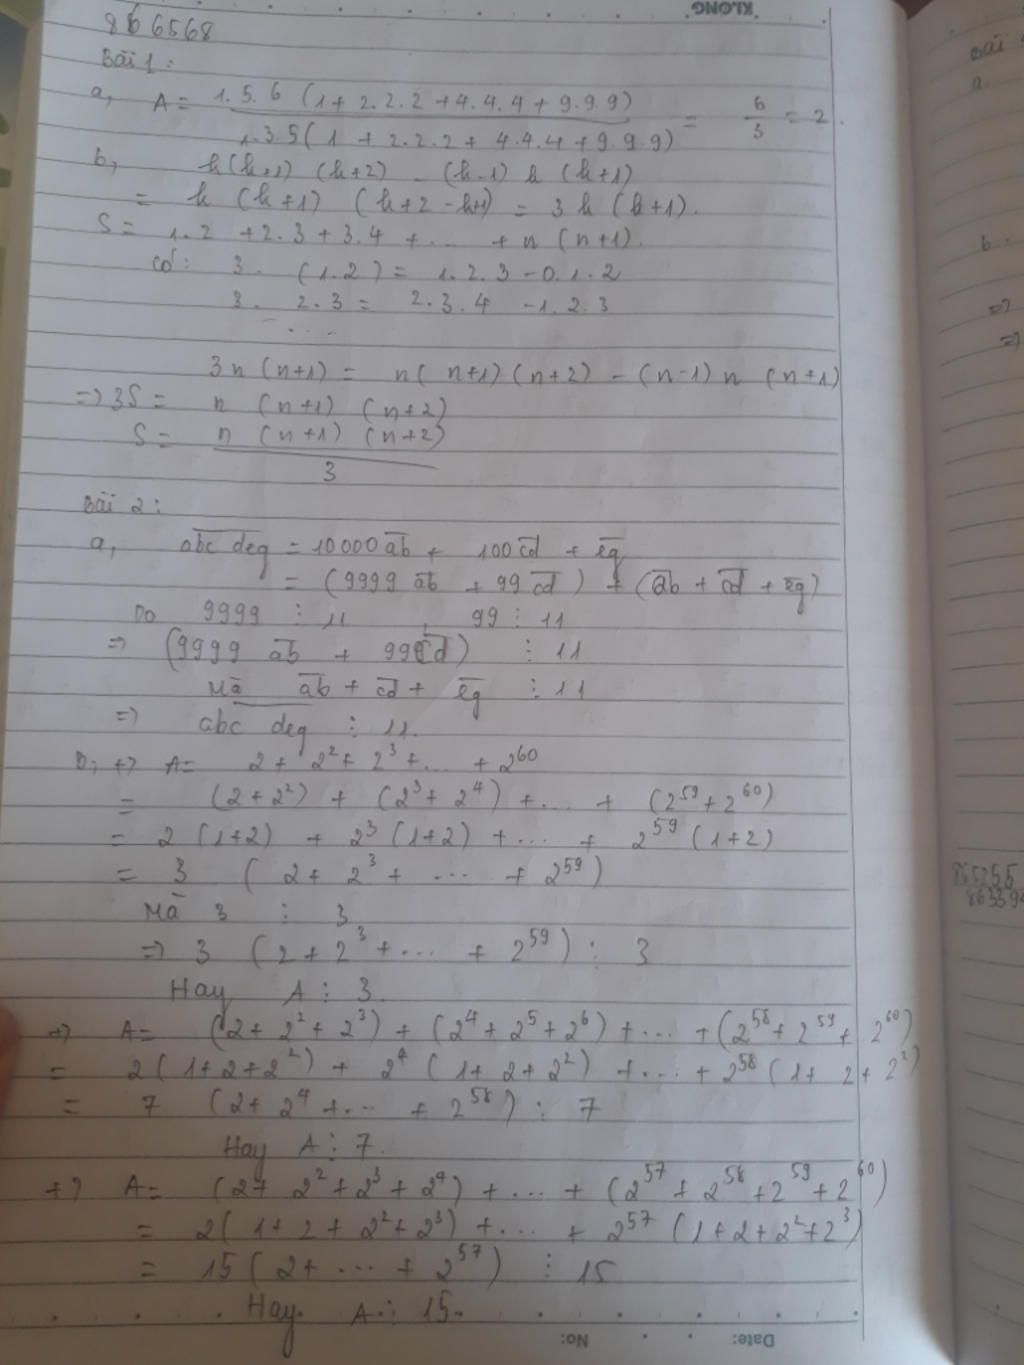 KLONG
866568
Bài 1:
a, A = 1.5.6 (1+2.2.2+4.4.4+9.9.9) / 1.3.5(1+2.2.2+4.4.4+9.9.9) = 6/3 = 2.
b, k(k+1)(k+2) - (k-1)k(k+1)
= k(k+1)(k+2-k+1) = 3k(k+1).
S = 1.2+2.3+3.4+... + n(n+1).
Có: 3.(1.2) = 1.2.3-0.1.2
3. 2.3 = 2.3.4 -1.2.3
....
3n(n+1) = n(n+1)(n+2) - (n-1)n(n+1)
=> 3S = n(n+1)(n+2)
S = n(n+1)(n+2) / 3
Bài 2:
a, abc deg = 10000 ab + 100 cd + eg
= (9999 ab + 99 cd) + (ab + cd + eg)
Do 9999 ⋮ 11, 99 ⋮ 11
=> (9999 ab + 99 cd) ⋮ 11
Mà ab + cd + eg ⋮ 11
=> abc deg ⋮ 11.
b, +) A = 2+2²+2³+... + 2⁶⁰
= (2+2²) + (2³+2⁴) +... + (2⁵⁹+2⁶⁰)
= 2(1+2) + 2³(1+2) +... + 2⁵⁹(1+2)
= 3 (2+2³+ ... + 2⁵⁹)
Mà 3 ⋮ 3
=> 3 (2+2³+... + 2⁵⁹) ⋮ 3
Hay A ⋮ 3.
+) A = (2+2²+2³) + (2⁴+2⁵+2⁶) +... + (2⁵⁸+2⁵⁹+2⁶⁰)
= 2(1+2+2²) + 2⁴(1+2+2²) +... + 2⁵⁸(1+2+2²)
= 7 (2+2⁴+... + 2⁵⁸) ⋮ 7
Hay A ⋮ 7.
+) A = (2+2²+2³+2⁴) +... + (2⁵⁷+2⁵⁸+2⁵⁹+2⁶⁰)
= 2(1+2+2²+2³) +... + 2⁵⁷(1+2+2²+2³)
= 15(2+ ... + 2⁵⁷) ⋮ 15
Hay A ⋮ 15.
No: Date:
Bài
a.
b.
=>
=>